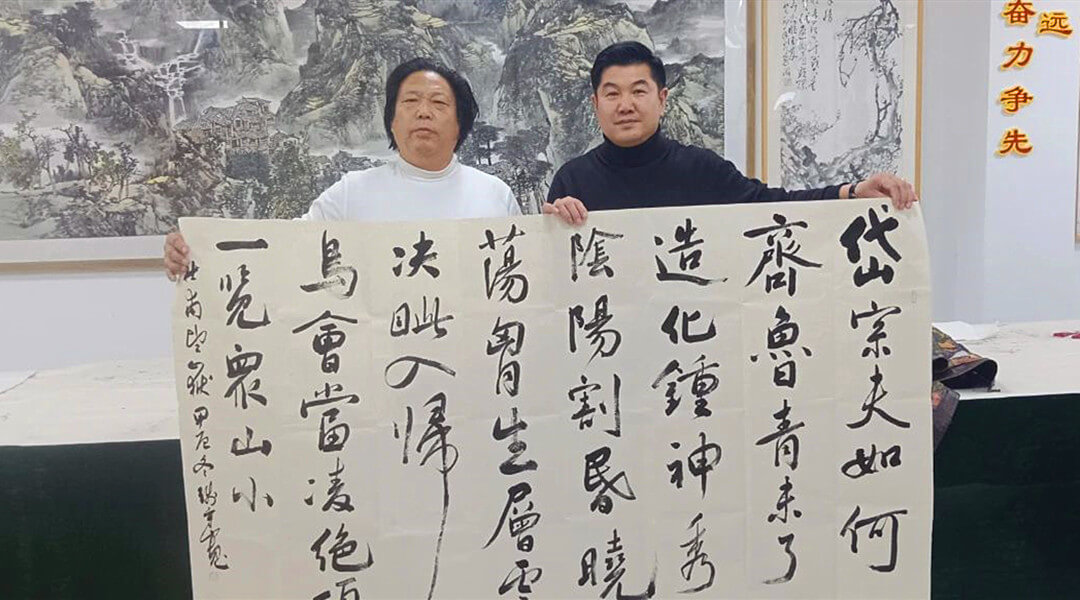 远
奋力争先
岱宗夫如何
齊魯青未了
造化鍾神秀
陰陽割昏曉
蕩胷生層雲
决眦入歸
鳥會當凌絶
一览眾山小
杜甫望嶽 甲辰冬